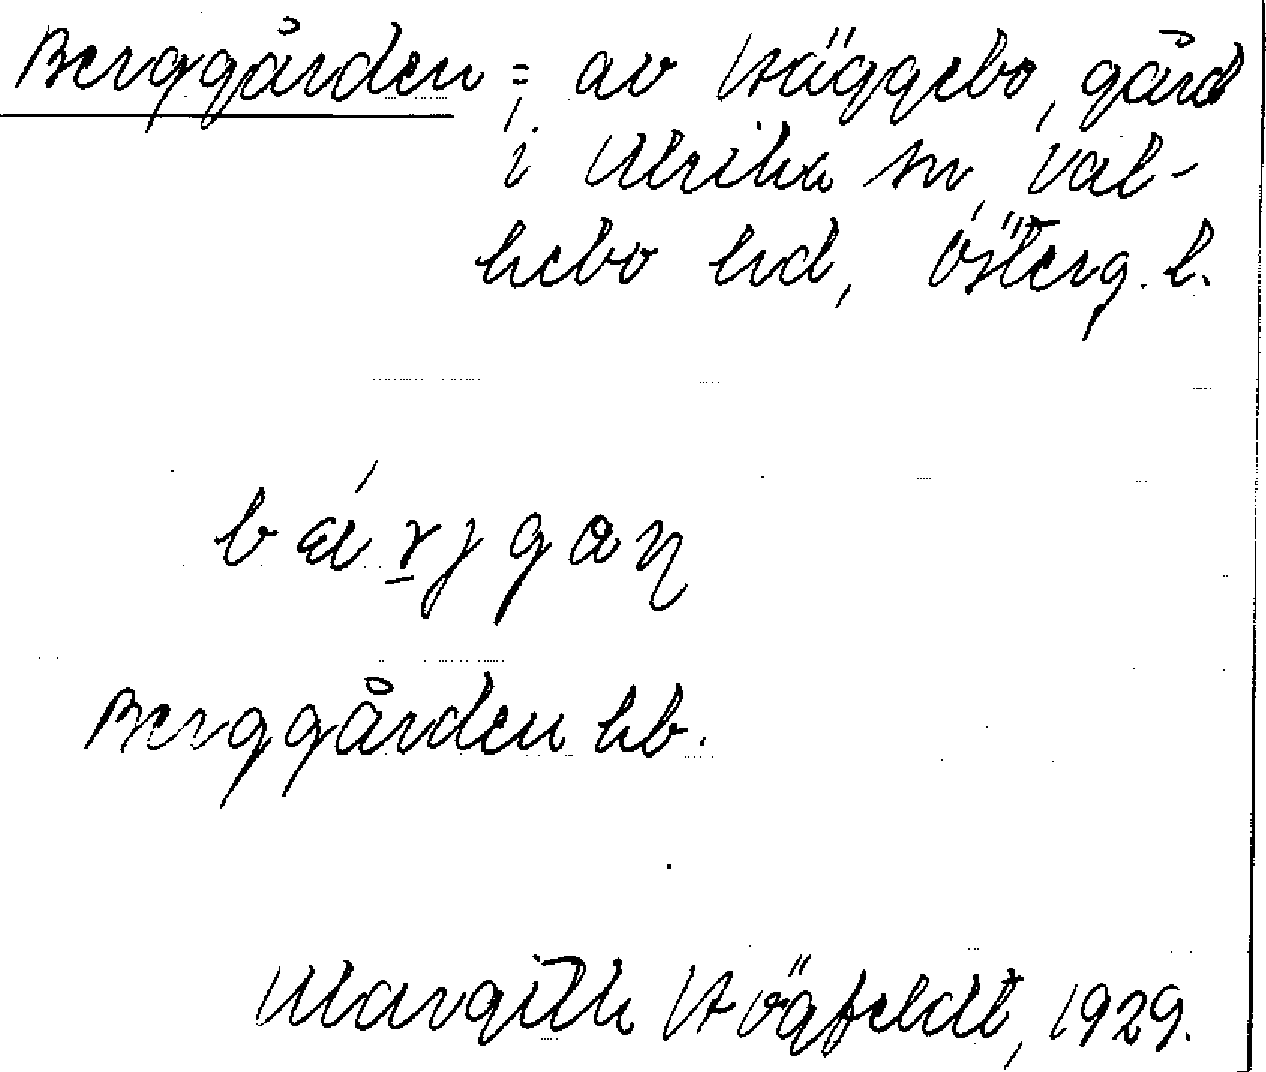 Berggården =, av Häggebo, gård
i Ulrika sn, Val-
kebo hd, Österg. l.
Berggården hb.
Margith Högfeldt, 1929.